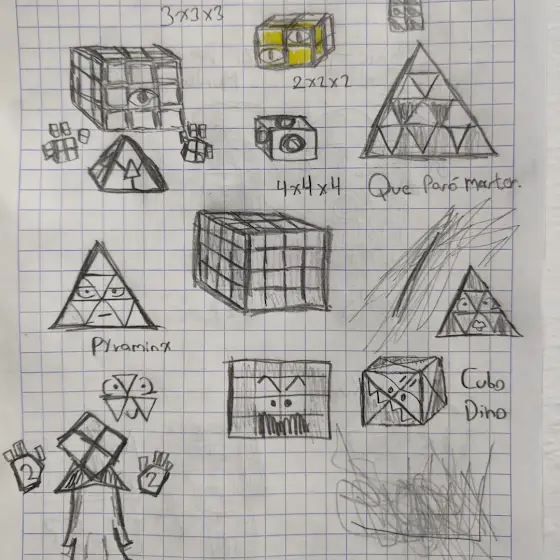 3x3x3
2x2x2
4x4x4
Que Paró marter.
Pyraminx
Cubo
Dino
2
2